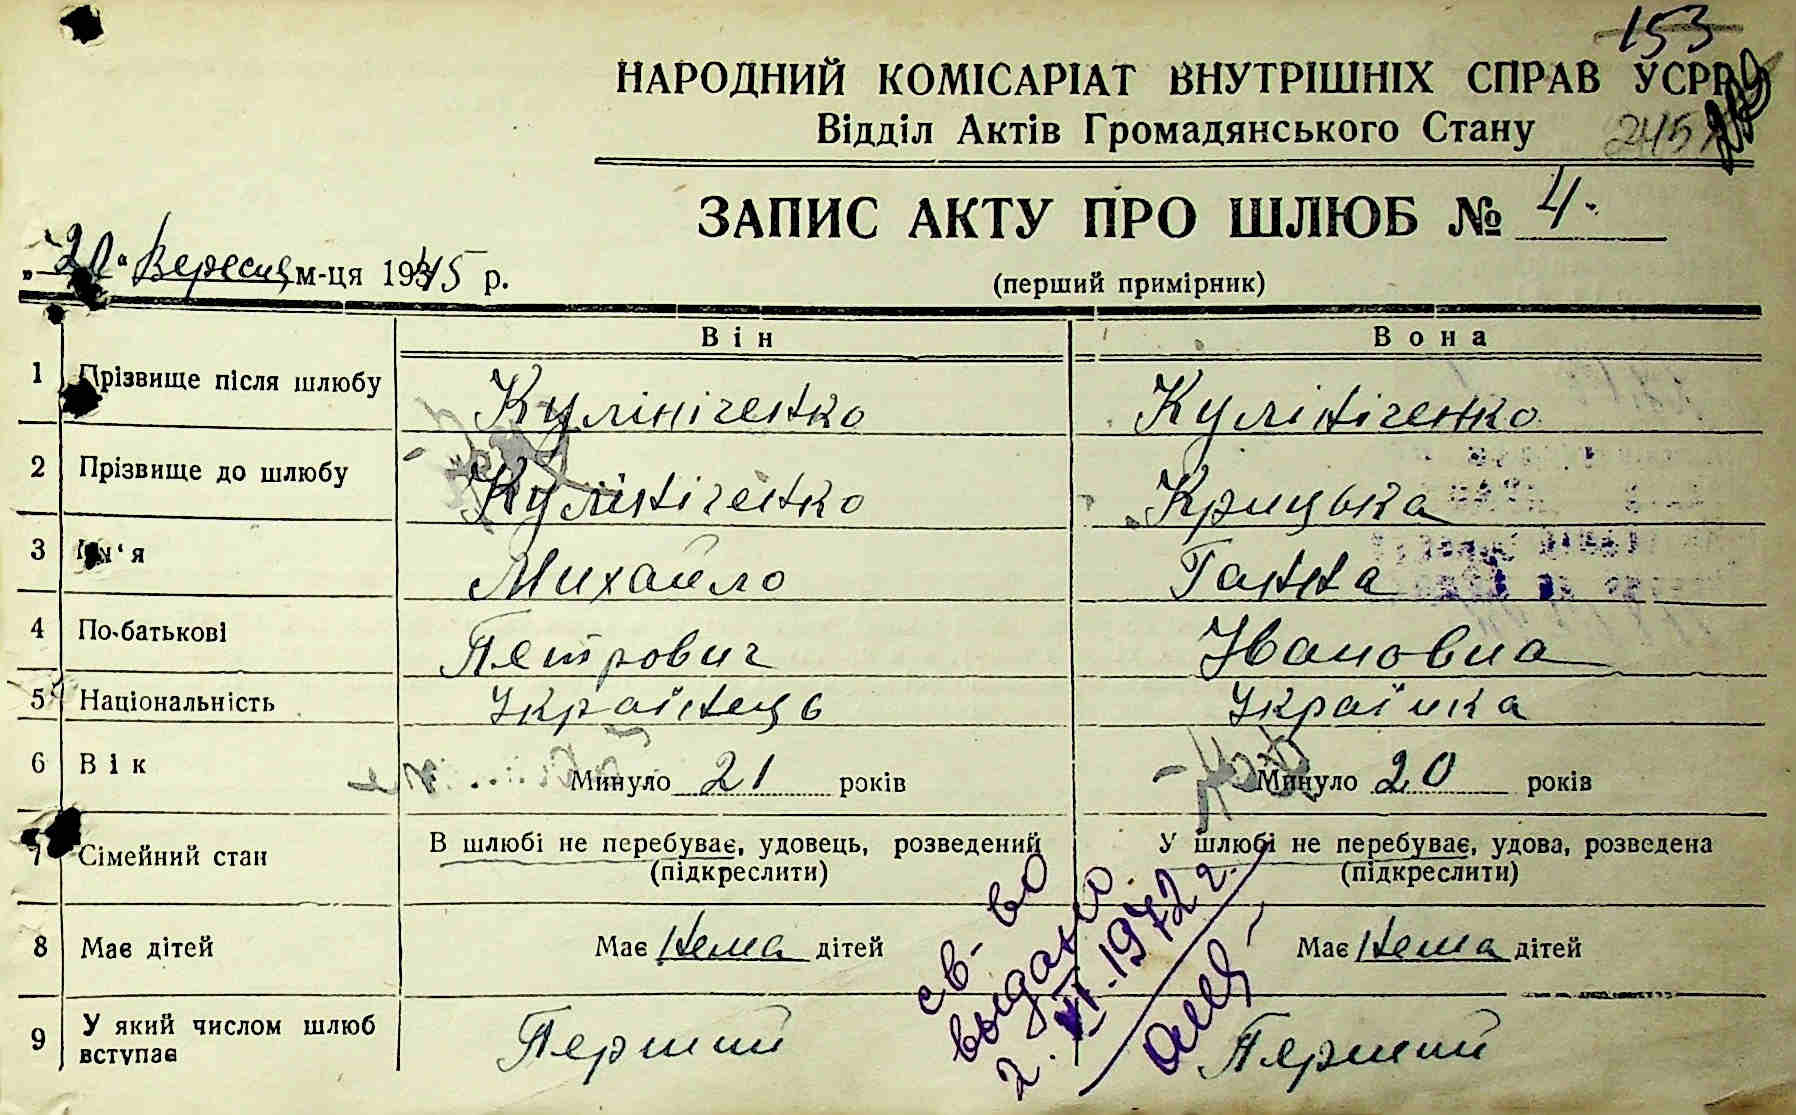 153
НАРОДНИЙ КОМІСАРІАТ ВНУТРІШНІХ СПРАВ УСРР
Відділ Актів Громадянського Стану
245
ЗАПИС АКТУ ПРО ШЛЮБ № 4.
„20“ Вересня м-ця 1945 р.
(перший примірник)
Він Вона
1 Прізвище після шлюбу Кулініченко Кулініченко
2 Прізвище до шлюбу Кулініченко Крицька
3 Ім'я Михайло Ганна
4 По-батькові Петрович Івановна
5 Національність Українець Українка
6 Вік Минуло 21 років Минуло 20 років
7 Сімейний стан В шлюбі не перебуває, удовець, розведений У шлюбі не перебуває, удова, розведена
(підкреслити) (підкреслити)
8 Має дітей Має Нема дітей Має Нема дітей
9 У який числом шлюб
вступає Перший Перший
св-во
выдано
2.VI.1972 г.